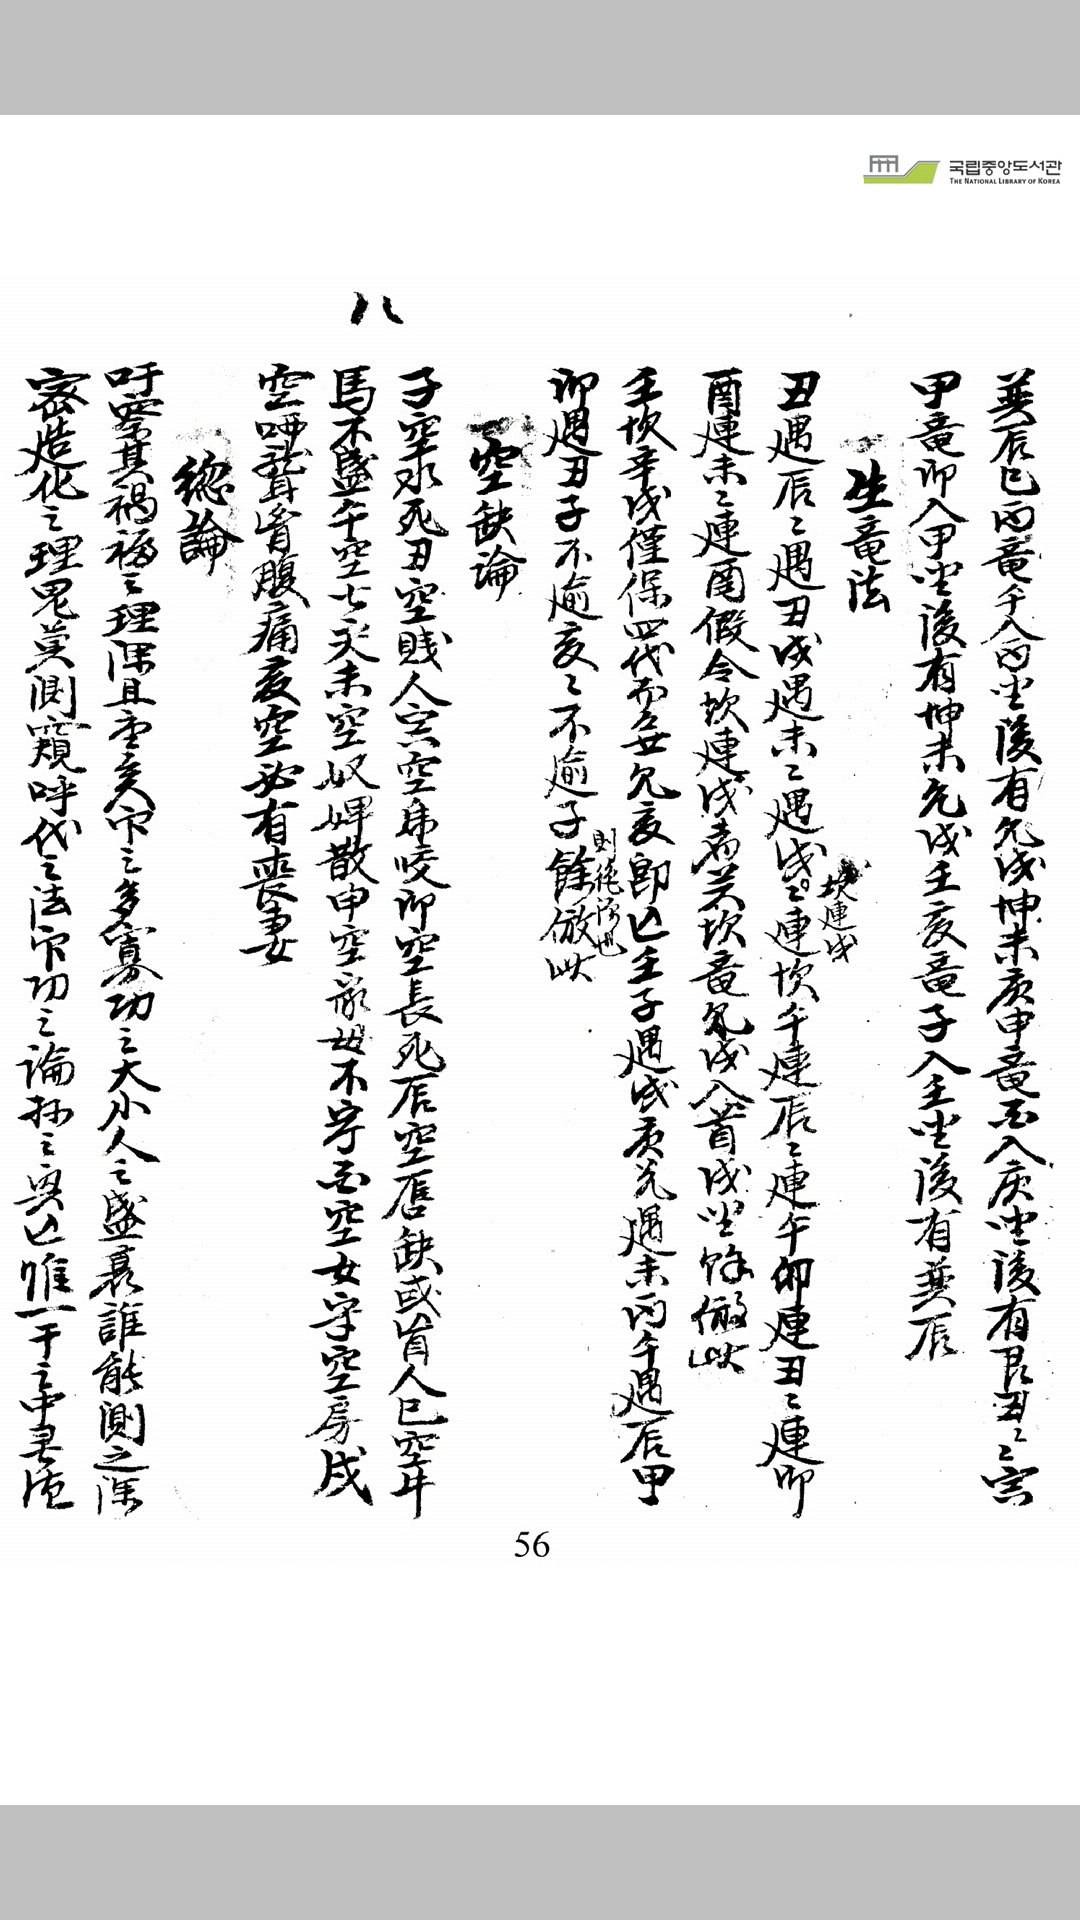 국립중앙도서관
THE NATIONAL LIBRARY OF KOREA
八
巽辰巳丙竜午入丙坐後有乾戌坤未庚申竜酉入庚坐後有艮丑〻寅
甲竜卯入甲坐後有坤未乾戌壬亥竜子入壬坐後有巽辰
生竜法
丑遇辰〻遇丑戌遇未〻遇戌〻連坎午連辰〻連午卯連丑〻連卯
坎連戌
酉連未〻連酉假令坎連戌者若坎竜乾戌入首戌坐餘倣此
壬坎辛戌僅保四代而無乾亥郎亡壬子遇戌庚兌遇未丙午遇辰甲
卯遇丑子不逾亥〻不逾子餘倣此
則絶嗣也
空缺論
子空水死丑空賤人寅空帍咬卯空長死辰空唇缺或盲人巳空牛
馬不盛午空七火未空奴婢散申空 母不字酉空女守空房戌
空啞聾胷腹痛亥空必有喪妻
總論
吁察其禍福之理深且重矣穴之多寡功之大小人之盛衰誰能測之深
密造化之理鬼莫測窺呼代之法穴功之論 之奧亡唯一干之中
56